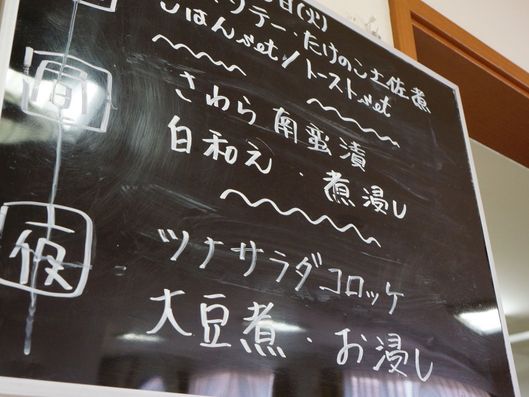 (火)
ソテー・たけのこ土佐煮
ごはんset/トーストset
間
さわら南蛮漬
白和え・煮浸し
夜
ツナサラダコロッケ
大豆煮・お浸し